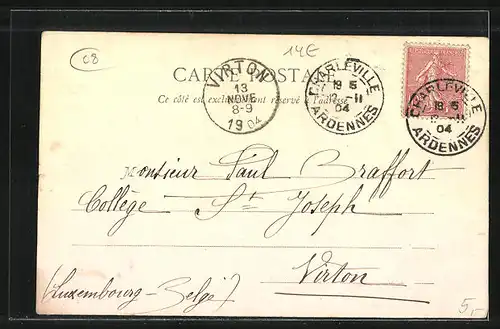 C8
14E
CARTE POSTALE
Ce côté est exclusivement réservé à l'adresse
VIRTON
13
NOVE
8-9
1904
CHARLEVILLE
19 5
12-11
04
ARDENNES
CHARLEVILLE
19 5
12-11
04
ARDENNES
Monsieur Paul Braffort
Collège St Joseph
Virton
(Luxembourg-Belge)
5,-